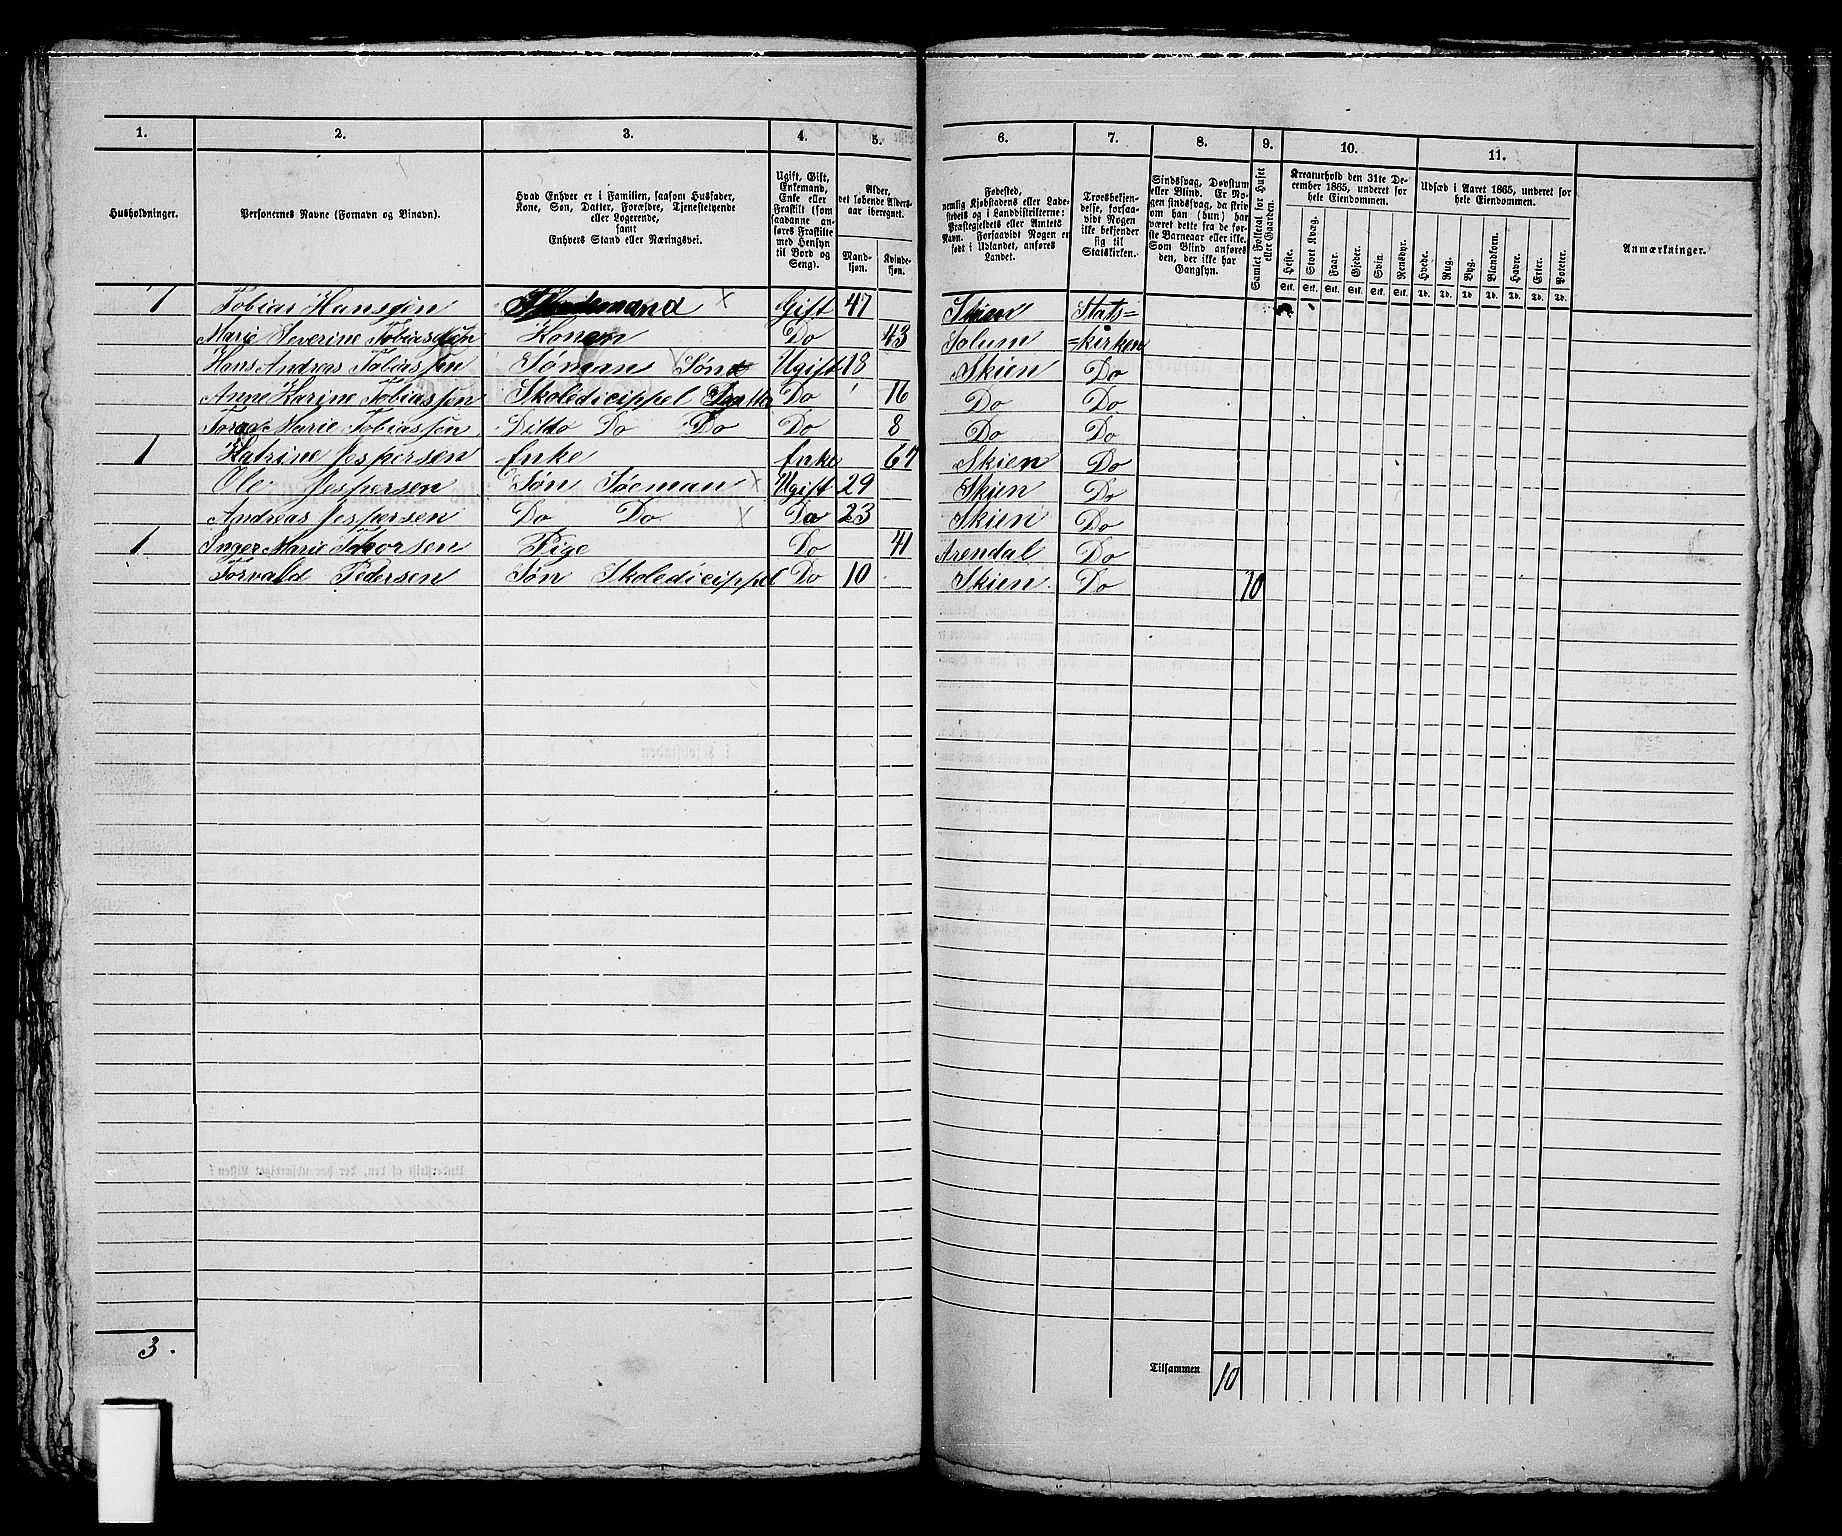 1. 2. 3. 4. 5. 6. 7. 8. 9. 10. 11.
Husholdninger.
Personernes Navne (Fornavn og Binavn).
Hvad Enhver er i Familien, saasom Husfader,
Kone, Søn, Datter, Forældre, Tjenestetyende
eller Logerende,
samt
Enhvers Stand eller Næringsvei.
Ugift, Gift,
Enkemand,
Enke eller
Fraskilt (som
saadanne an-
føres Fraskilte
med Hensyn
til Bord og
Seng).
Alder,
det løbende Alders-
aar iberegnet.
Mand-
kjøn.
Kvinde-
kjøn.
Fødested,
nemlig Kjøbstadens eller Lade-
stedets og i Landdistrikterne:
Præstegjeldets eller Amtets
Navn. Forsaavidt Nogen er
født i Udlandet, anføres
Landet.
Troesbekjen-
delse, forsaa-
vidt Nogen
ikke bekjender
sig til
Statskirken.
Sindssvag, Døvstum
eller Blind. Er No-
gen sindssvag, da skriv
om han (hun) har
været dette fra de før-
ste Barneaar eller ikke.
Som Blind anføres
den, der ikke har
Gangsyn.
Samlet Folketal for Huset
eller Gaarden.
Kreaturhold den 31te De-
cember 1865, underet for
hele Eiendommen.
Heste. Stort Kvæg. Faar. Gjeder. Svin. Rensdyr.
Stk. Stk. Stk. Stk. Stk. Stk.
Udsæd i Aaret 1865, underet for
hele Eiendommen.
Hvede. Rug. Byg. Blandkorn. Havre. Erter. Poteter.
Td. Td. Td. Td. Td. Td. Td.
Anmærkninger.
1 Tobias Hansen X Gift 47 Skien Stats=
Marie Severine Tobiassen Konen Do 43 Solum =kirken
Hans Andreas Tobiassen Søman X Søn Ugift 18 Skien Do
Anne Karine Tobiassen Skoledicippel Datter Do 16 Do Do
Marie Tobiassen Ditto Do Do Do 8 Do Do
1 Katrine Jespersen Enke Enke 67 Skien Do
Ole Jespersen Søn Søeman X Ugift 29 Skien Do
Andreas Jespersen Do Do X Do 23 Skien Do
1 Inger Marie Thorsen Pige Do 41 Arendal Do
Torvald Pedersen Søn Skoledicippel Do 10 Skien Do 10
3.
Tilsammen 10